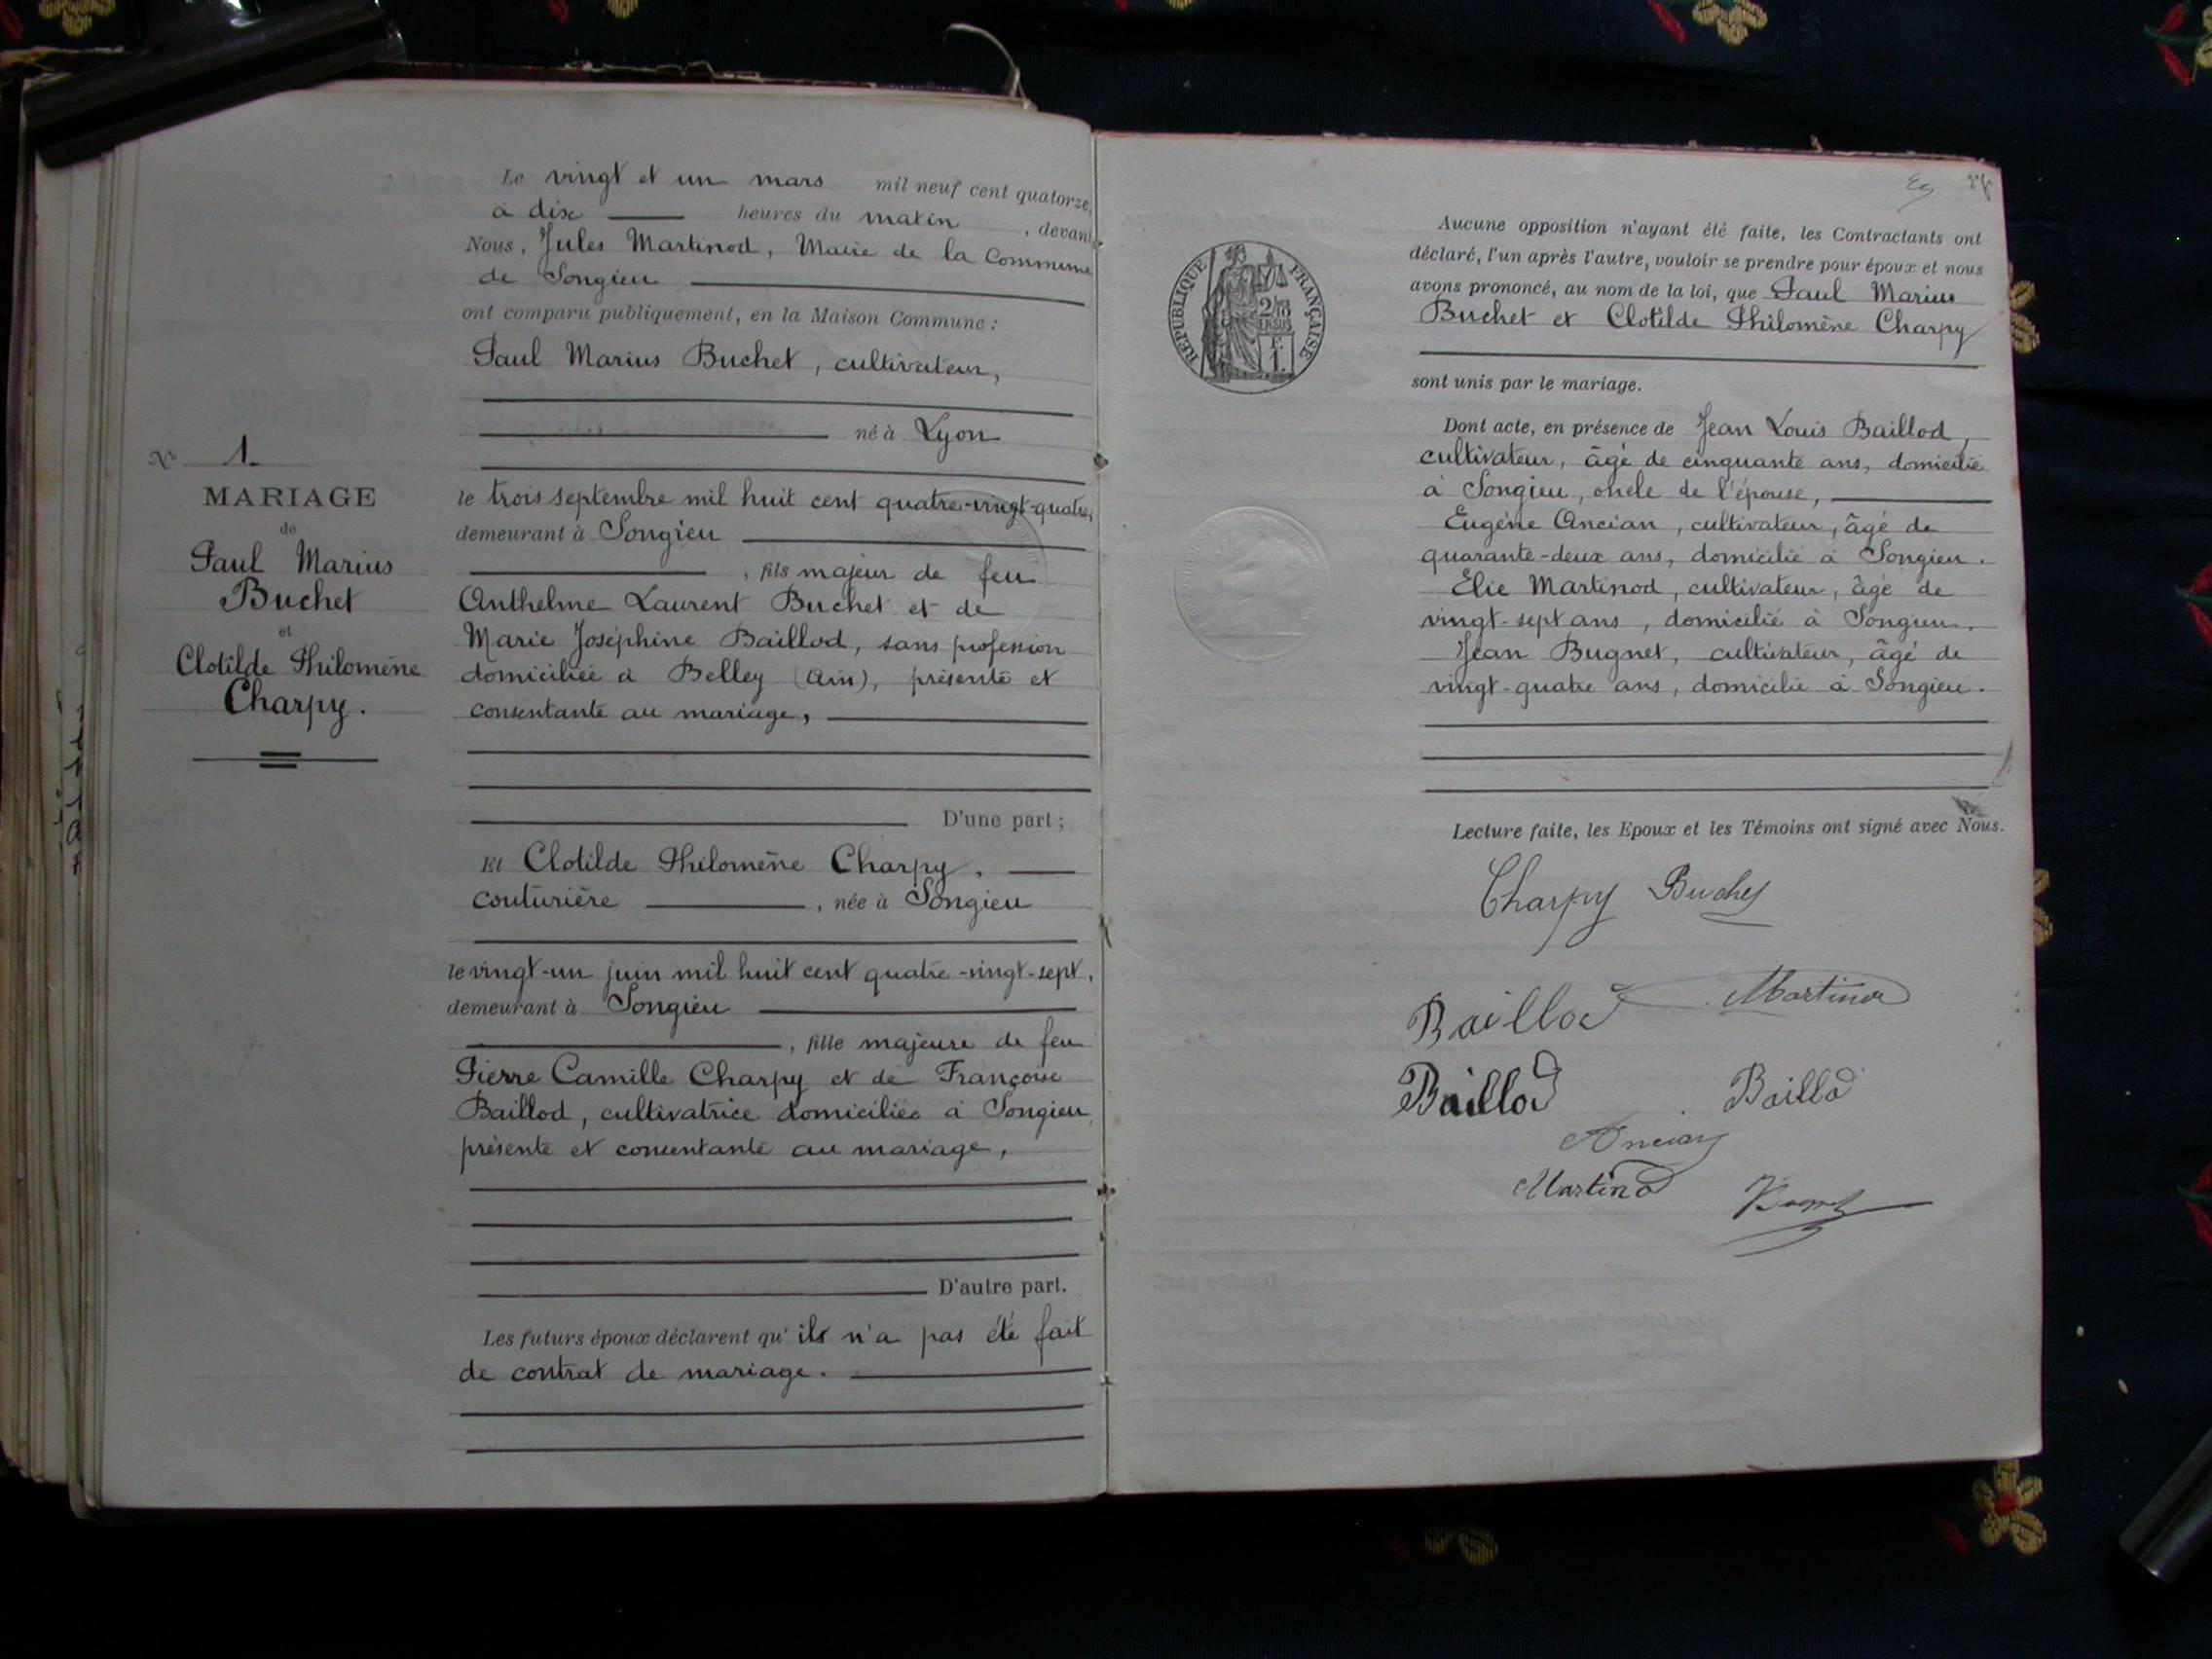 Le vingt et un mars mil neuf cent quatorze,
à dix heures du matin, devant
Nous, Jules Martinod, Maire de la Commune
de Songieu
ont comparu publiquement, en la Maison Commune :
Paul Marius Buchet, cultivateur,
né à Lyon
le trois septembre mil huit cent quatre-vingt-quatre,
demeurant à Songieu
, fils majeur de feu
Anthelme Laurent Buchet et de
Marie Joséphine Baillod, sans profession
domiciliée à Belley (Ain), présente et
consentante au mariage,
D'une part ;
Et Clotilde Philomène Charpy,
couturière, née à Songieu
le vingt-un juin mil huit cent quatre-vingt-sept,
demeurant à Songieu
, fille majeure de feu
Pierre Camille Charpy et de Françoise
Baillod, cultivatrice domiciliée à Songieu,
présente et consentante au mariage,
D'autre part.
Les futurs époux déclarent qu'ils n'a pas été fait
de contrat de mariage.
N° 1
MARIAGE
de
Paul Marius
Buchet
et
Clotilde Philomène
Charpy.
RÉPUBLIQUE FRANÇAISE
2/10
EN SUS
F.
1.
Aucune opposition n'ayant été faite, les Contractants ont
déclaré, l'un après l'autre, vouloir se prendre pour époux et nous
avons prononcé, au nom de la loi, que Paul Marius
Buchet et Clotilde Philomène Charpy
sont unis par le mariage.
Dont acte, en présence de Jean Louis Baillod,
cultivateur, âgé de cinquante ans, domicilié
à Songieu, oncle de l'épouse,
Eugène Ancian, cultivateur, âgé de
quarante-deux ans, domicilié à Songieu.
Elie Martinod, cultivateur, âgé de
vingt-sept ans, domicilié à Songieu.
Jean Bugnet, cultivateur, âgé de
vingt-quatre ans, domicilié à Songieu.
Lecture faite, les Epoux et les Témoins ont signé avec Nous.
Charpy Buchet
Baillod Martinod
Baillod Baillod
Ancian
Martinod Bugnet